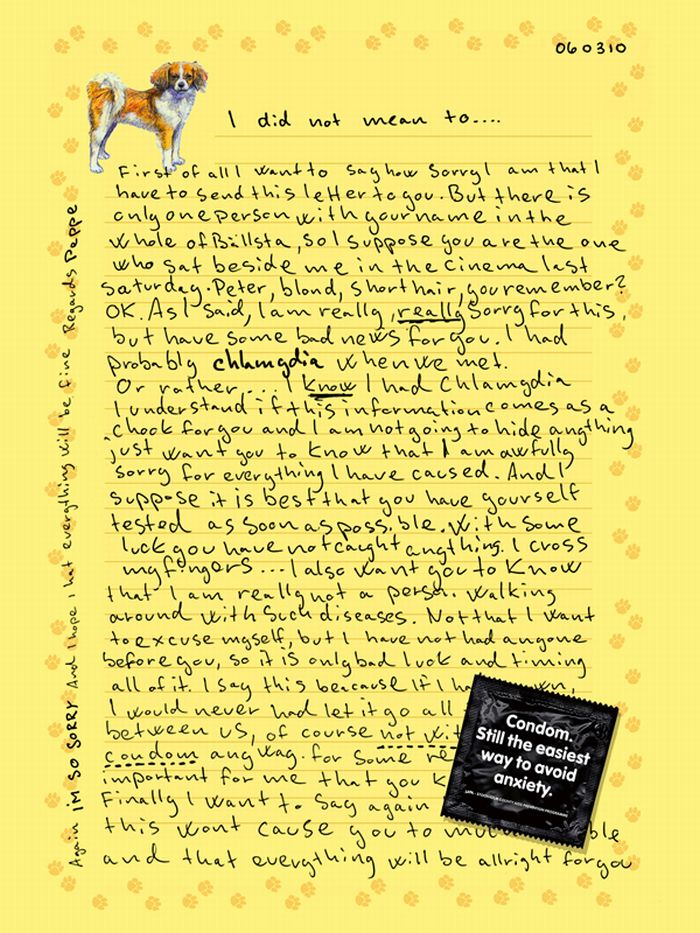 060310
I did not mean to....
First of all I want to say how sorry I am that I
have to send this letter to you. But there is
only one person with your name in the
whole of Bällsta, so I suppose you are the one
who sat beside me in the cinema last
saturday. Peter, blond, short hair, you remember?
OK. As I said, I am really, really sorry for this,
but have some bad news for you. I had
probably chlamydia when we met.
Or rather... I know I had Chlamydia
I understand if this information comes as a
chock for you and I am not going to hide anything
just want you to know that I am awfully
sorry for everything I have caused. And I
suppose it is best that you have yourself
tested as soon as possible. With some
luck you have not caught anything. I cross
my fingers... I also want you to know
that I am really not a person walking
around with such diseases. Not that I want
to excuse myself, but I have not had anyone
before you, so it is only bad luck and timing
all of it. I say this beacause If I
I would never had let it go all
between us, of course not
condom anyway. for some
important for me that you
Finally I want to say again
this wont cause you to
and that everything will be allright for you
Again IM SO SORRY And I hope that everything will be fine Regards Peppe
Condom.
Still the easiest
way to avoid
anxiety.